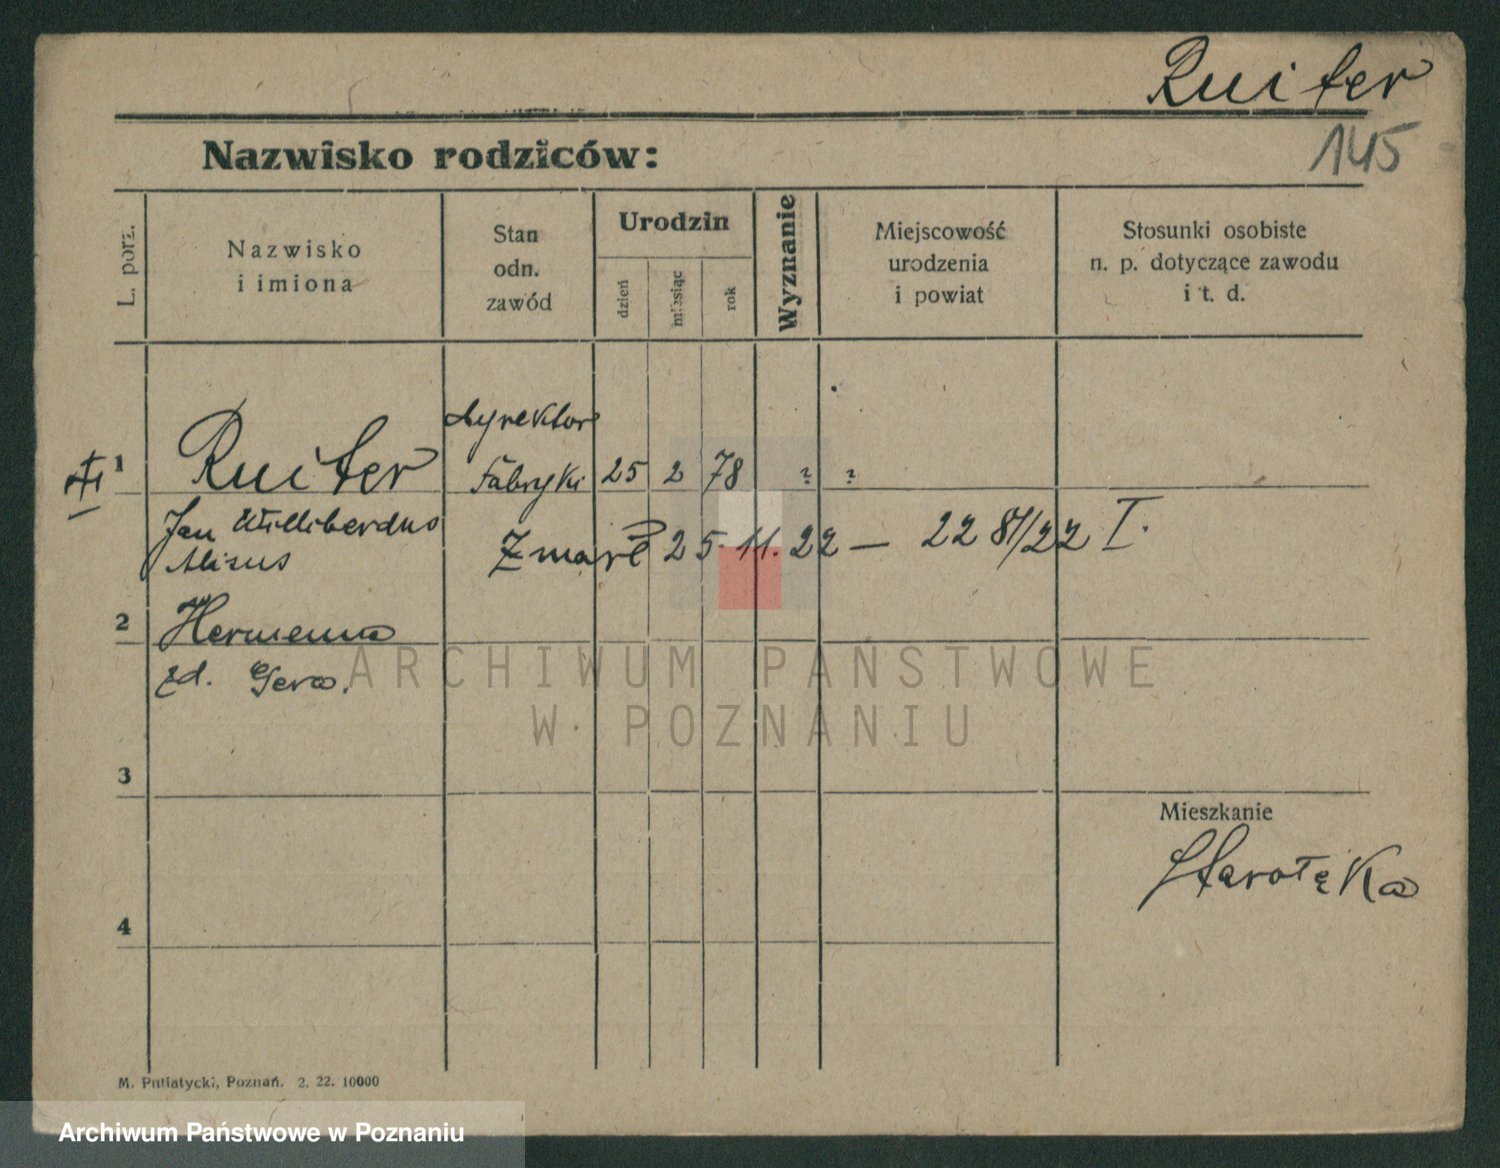 Ruiter
145
Nazwisko rodziców:
L. porz.
Nazwisko
i imiona
Stan
odn.
zawód
Urodzin
dzień
miesiąc
rok
Wyznanie
Miejscowość
urodzenia
i powiat
Stosunki osobiste
n. p. dotyczące zawodu
i t. d.
dyrektor
1 Ruiter Fabryki 25 2 78 ? ?
Jan Williberdus
Zmarł 25.11.22 — 22 81/22 I.
2 Hermenna
zd. Gera.
ARCHIWUM PAŃSTWOWE
W POZNANIU
3
Mieszkanie
Starołęka
4
M. Putiatycki, Poznań. 2. 22. 10000
Archiwum Państwowe w Poznaniu